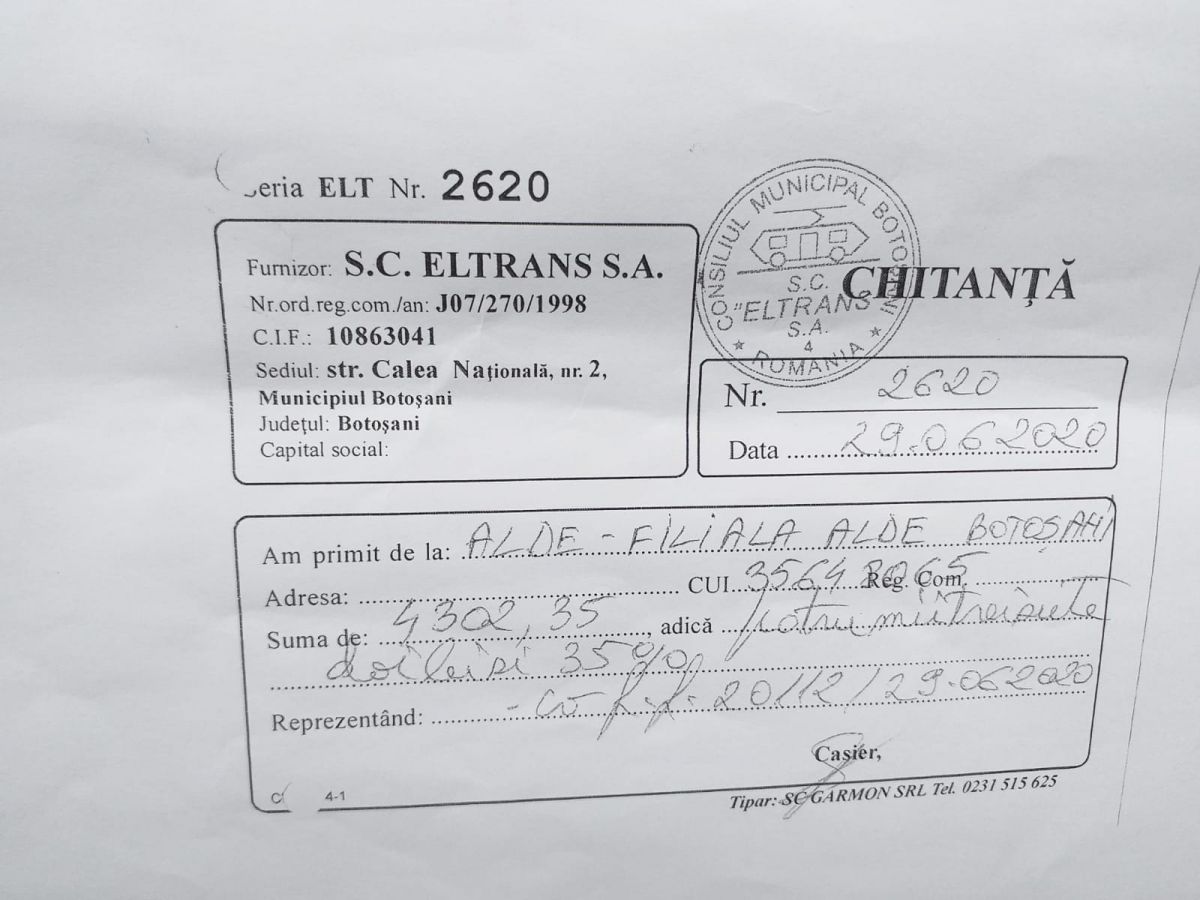 eria ELT Nr. 2620
Furnizor: S.C. ELTRANS S.A.
Nr.ord.reg.com./an: J07/270/1998
C.I.F.: 10863041
Sediul: str. Calea Națională, nr. 2,
Municipiul Botoșani
Județul: Botoșani
Capital social:
CONSILIUL MUNICIPAL BOTOȘANI
S.C.
"ELTRANS"
S.A.
4
★ ROMANIA ★
CHITANȚĂ
Nr. 2620
Data 29.06.2020
Am primit de la: ALDE - FILIALA ALDE BOTOȘANI
Adresa: CUI 35648065 Reg. Com.
Suma de: 4302,35, adică patru mii trei sute
doi lei și 35 %
Reprezentând: - cv f.f. 20112/29.062020
Casier,
4-1
Tipar: SC GARMON SRL Tel. 0231 515 625